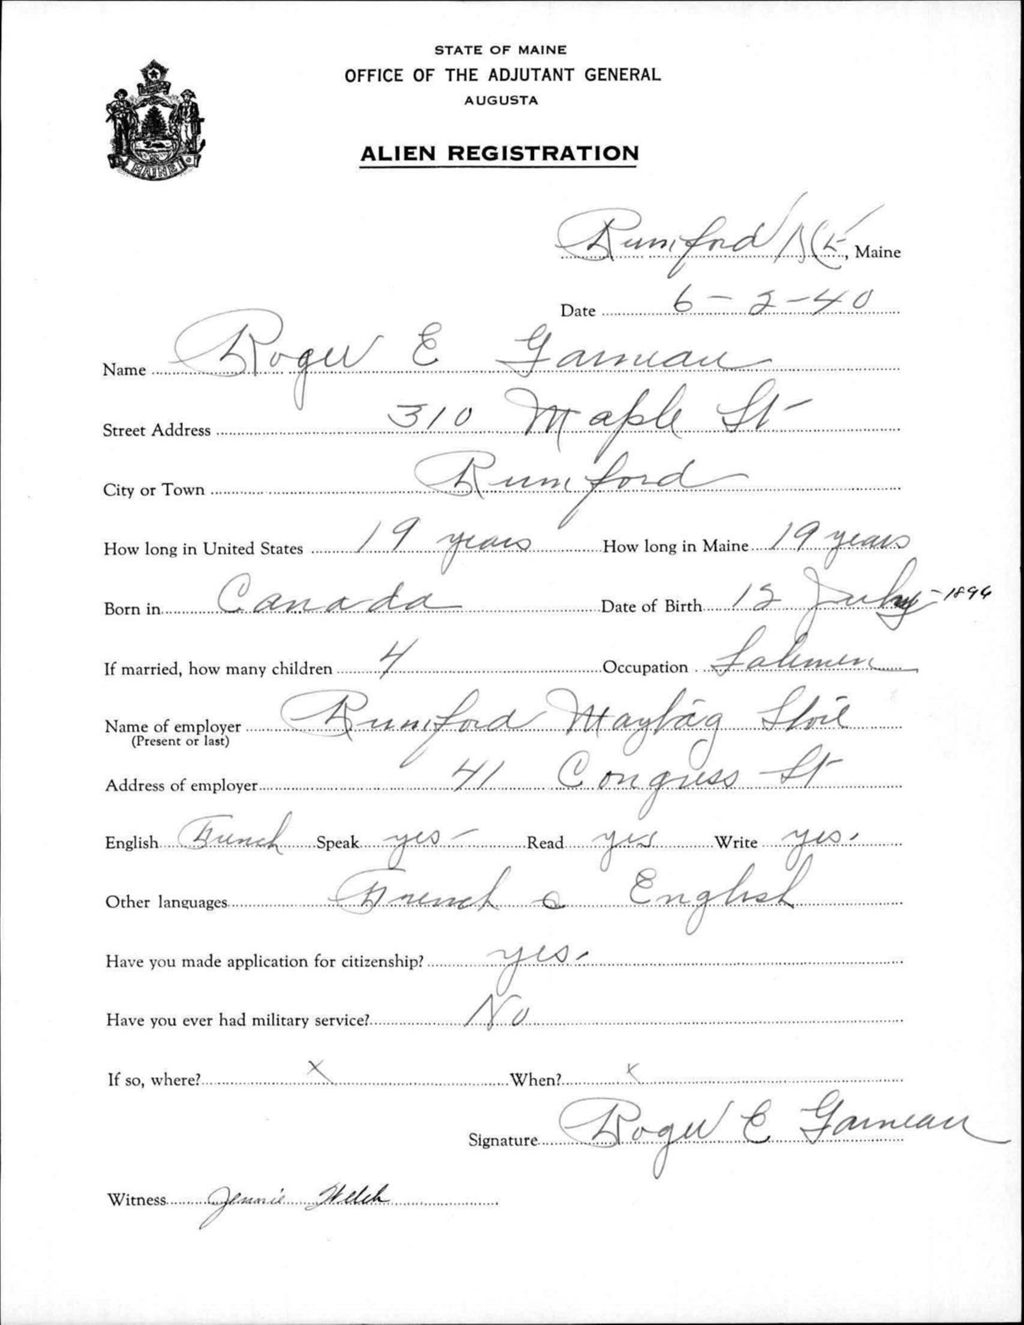 STATE OF MAINE
OFFICE OF THE ADJUTANT GENERAL
AUGUSTA
MAINE
ALIEN REGISTRATION
Rumford ME, Maine
Date 6-2-40
Name Roger E Garneau
Street Address 310 Maple St-
City or Town Rumford
How long in United States 19 years How long in Maine 19 years
Born in Canada Date of Birth 12 July-1896
If married, how many children 4 Occupation Salemen
Name of employer Rumford Maytag Store
(Present or last)
Address of employer 41 Congress St
English French Speak yes- Read yes Write yes.
Other languages French & English
Have you made application for citizenship? yes.
Have you ever had military service? No
If so, where? x When? x
Signature Roger E Garneau
Witness Jennie Welch